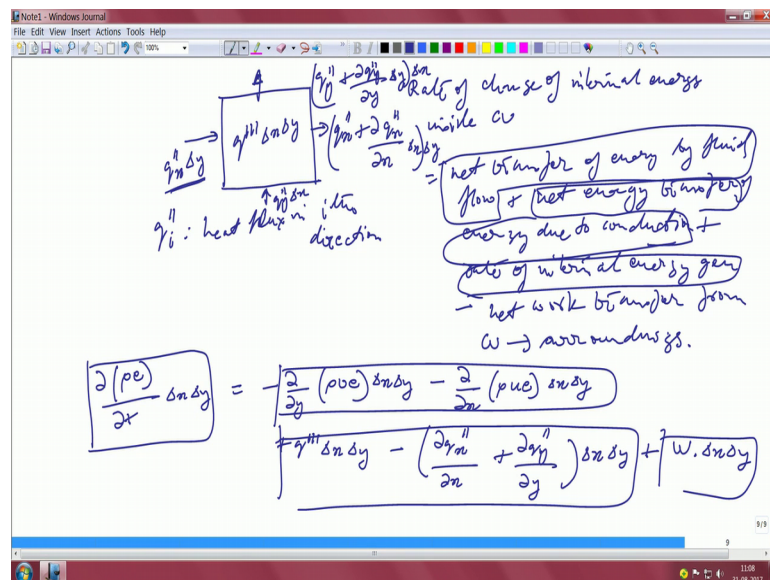 Note1 - Windows Journal
File Edit View Insert Actions Tools Help
100%
(q''y + ∂q''y/∂y Δy)Δn
Rate of change of internal energy
inside CV
q''n Δy → q''' Δn Δy → (q''n + ∂q''n/∂n Δn)Δy
↑ q''y Δn
q''i : heat flux in ith
direction
= net transfer of energy by fluid
flow + net energy transfer of
energy due to conduction +
rate of internal energy gen
- net work transfer from
CV → surroundings.
∂(ρe)/∂t Δn Δy = - ∂/∂y (ρve) Δn Δy - ∂/∂n (ρue) Δn Δy
+ q''' Δn Δy - (∂q''n/∂n + ∂q''y/∂y) Δn Δy + W. Δn Δy
9/9
9
11:08
31-08-2017